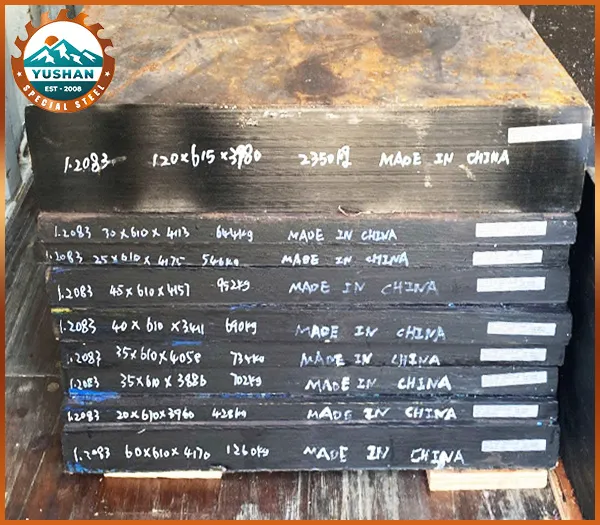 YUSHAN
EST - 2008
SPECIAL STEEL
1.2083 120×615×3980 2350kg MADE IN CHINA
1.2083 30×610×4113 644kg MADE IN CHINA
1.2083 25×610×4175 546kg MADE IN CHINA
1.2083 45×610×4157 952kg MADE IN CHINA
1.2083 40×610×3441 690kg MADE IN CHINA
1.2083 35×610×4058 734kg MADE IN CHINA
1.2083 35×610×3886 702kg MADE IN CHINA
1.2083 20×610×3960 428kg MADE IN CHINA
1.2083 60×610×4170 1260kg MADE IN CHINA